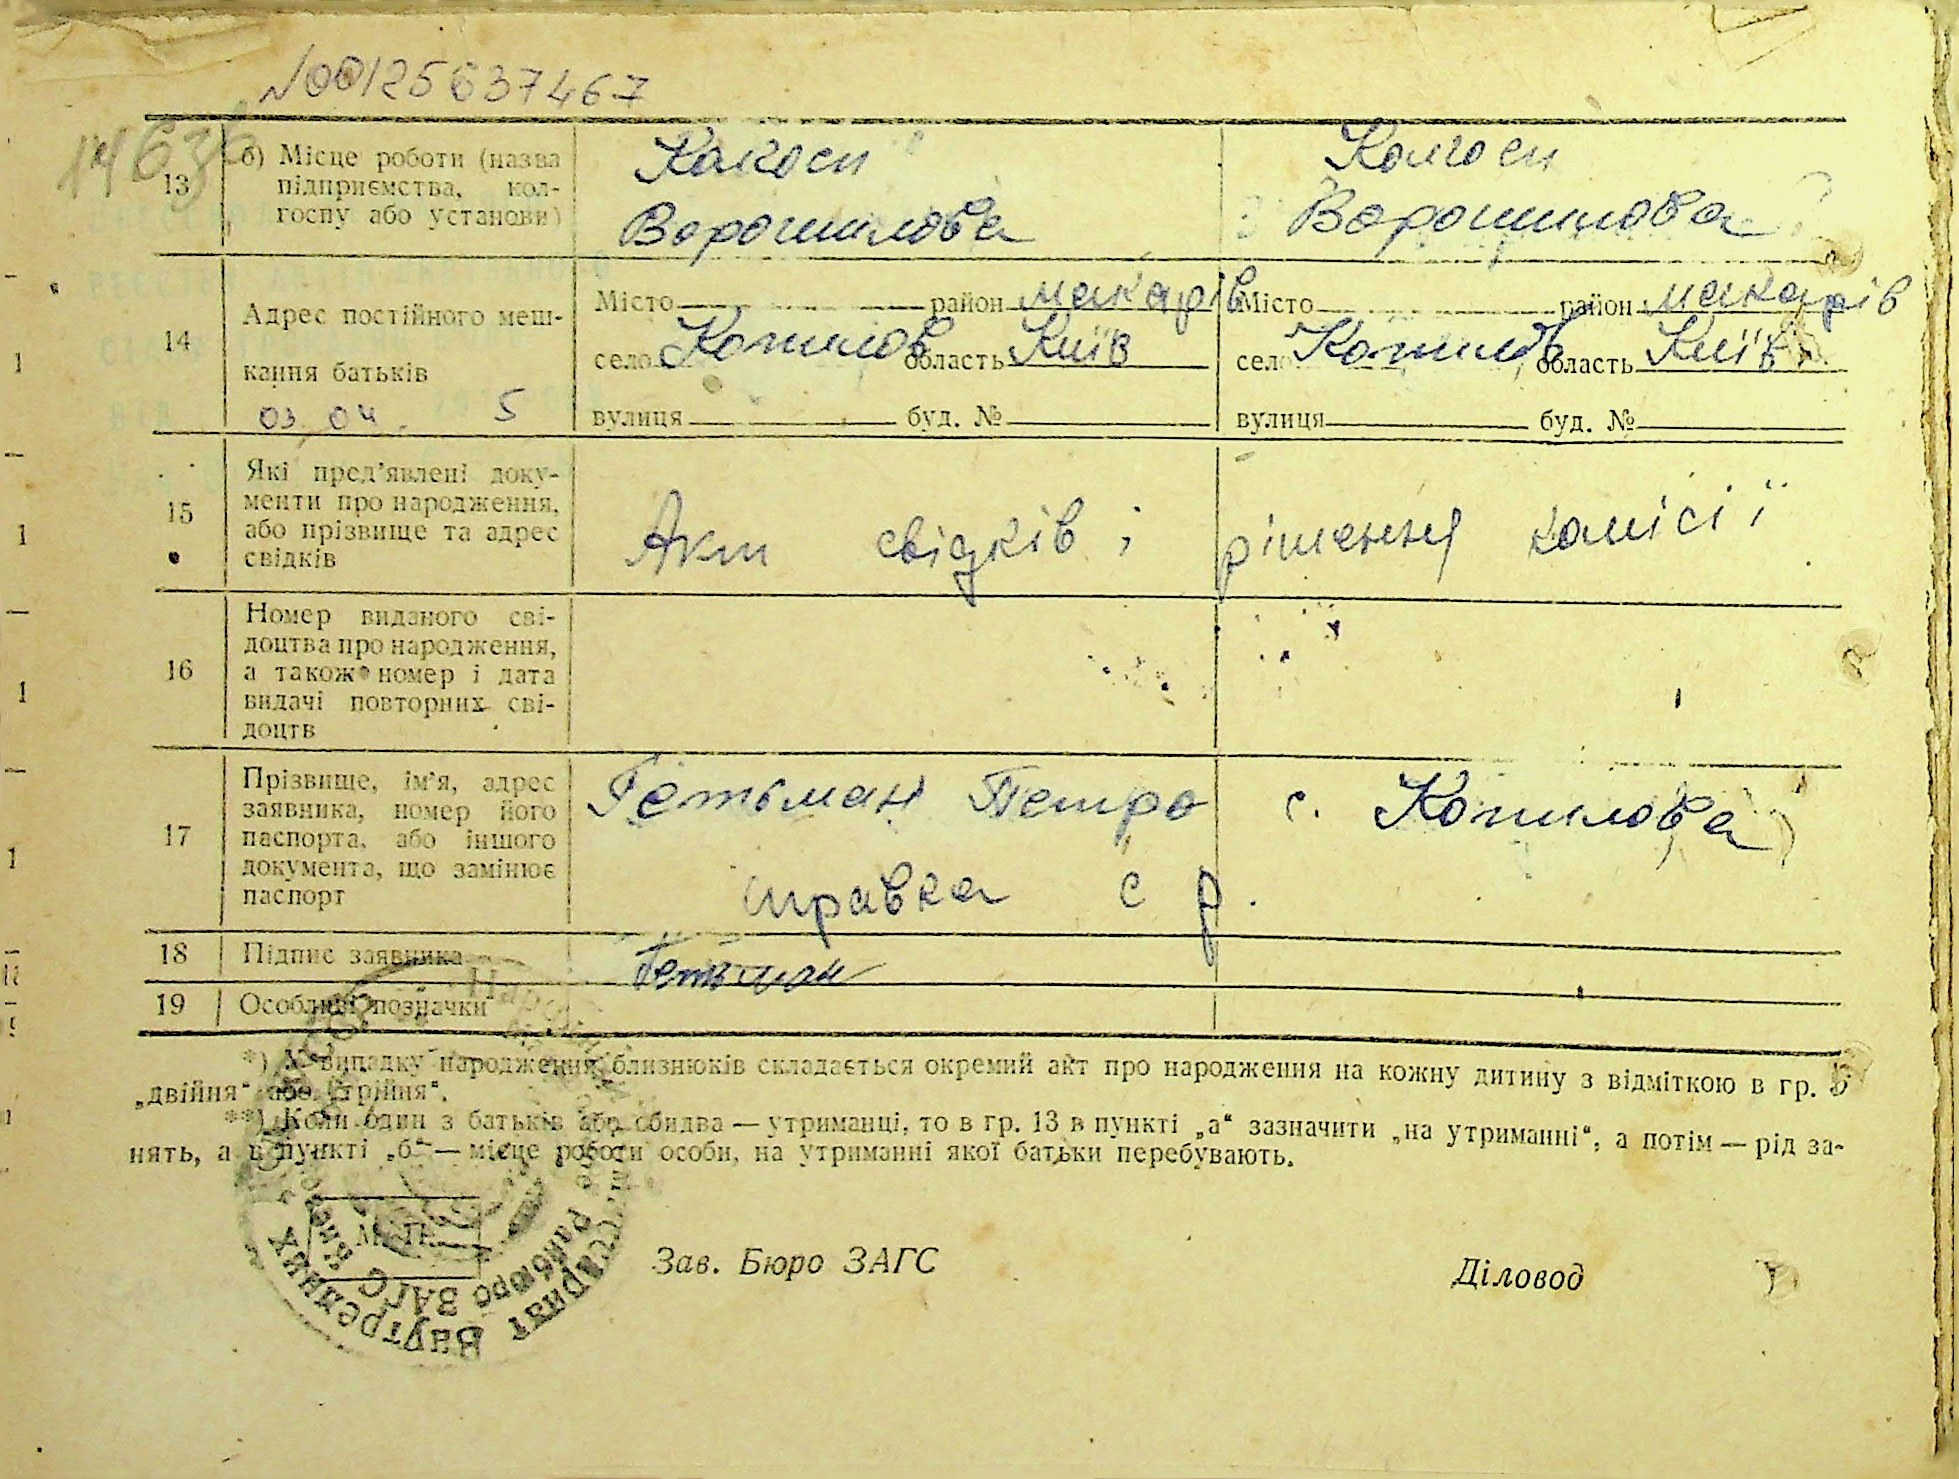 №00125637467
1463
13
б) Місце роботи (назва
підприємства, кол-
госпу або установи)
Колгосп
Ворошилова
Колгосп
Ворошилова
14
Адрес постійного меш-
кання батьків
03 04. 5
Місто район макарів
село Копилов область Київ
вулиця буд. №
Місто район макарів
село Копилов область Київ
вулиця буд. №
15
Які пред'явлені доку-
менти про народження,
або прізвище та адрес
свідків
Акт свідків і рішення комісії
16
Номер виданого сві-
доцтва про народження,
а також номер і дата
видачі повторних сві-
доцтв
17
Прізвище, ім'я, адрес
заявника, номер його
паспорта, або іншого
документа, що замінює
паспорт
Гетьман Петро с. Копилова
справка с р.
18 Підпис заявника Гетьман
19 Особливі позначки
*) У випадку народження близнюків складається окремий акт про народження на кожну дитину з відміткою в гр. 5
„двійня“ або „трійня“.
**) Коли один з батьків або обидва — утриманці, то в гр. 13 в пункті „а“ зазначити „на утриманні“, а потім — рід за-
нять, а в пункті „б“ — місце роботи особи, на утриманні якої батьки перебувають.
М. П.
Зав. Бюро ЗАГС
Діловод
Внутренних
Райбюро ЗАГС